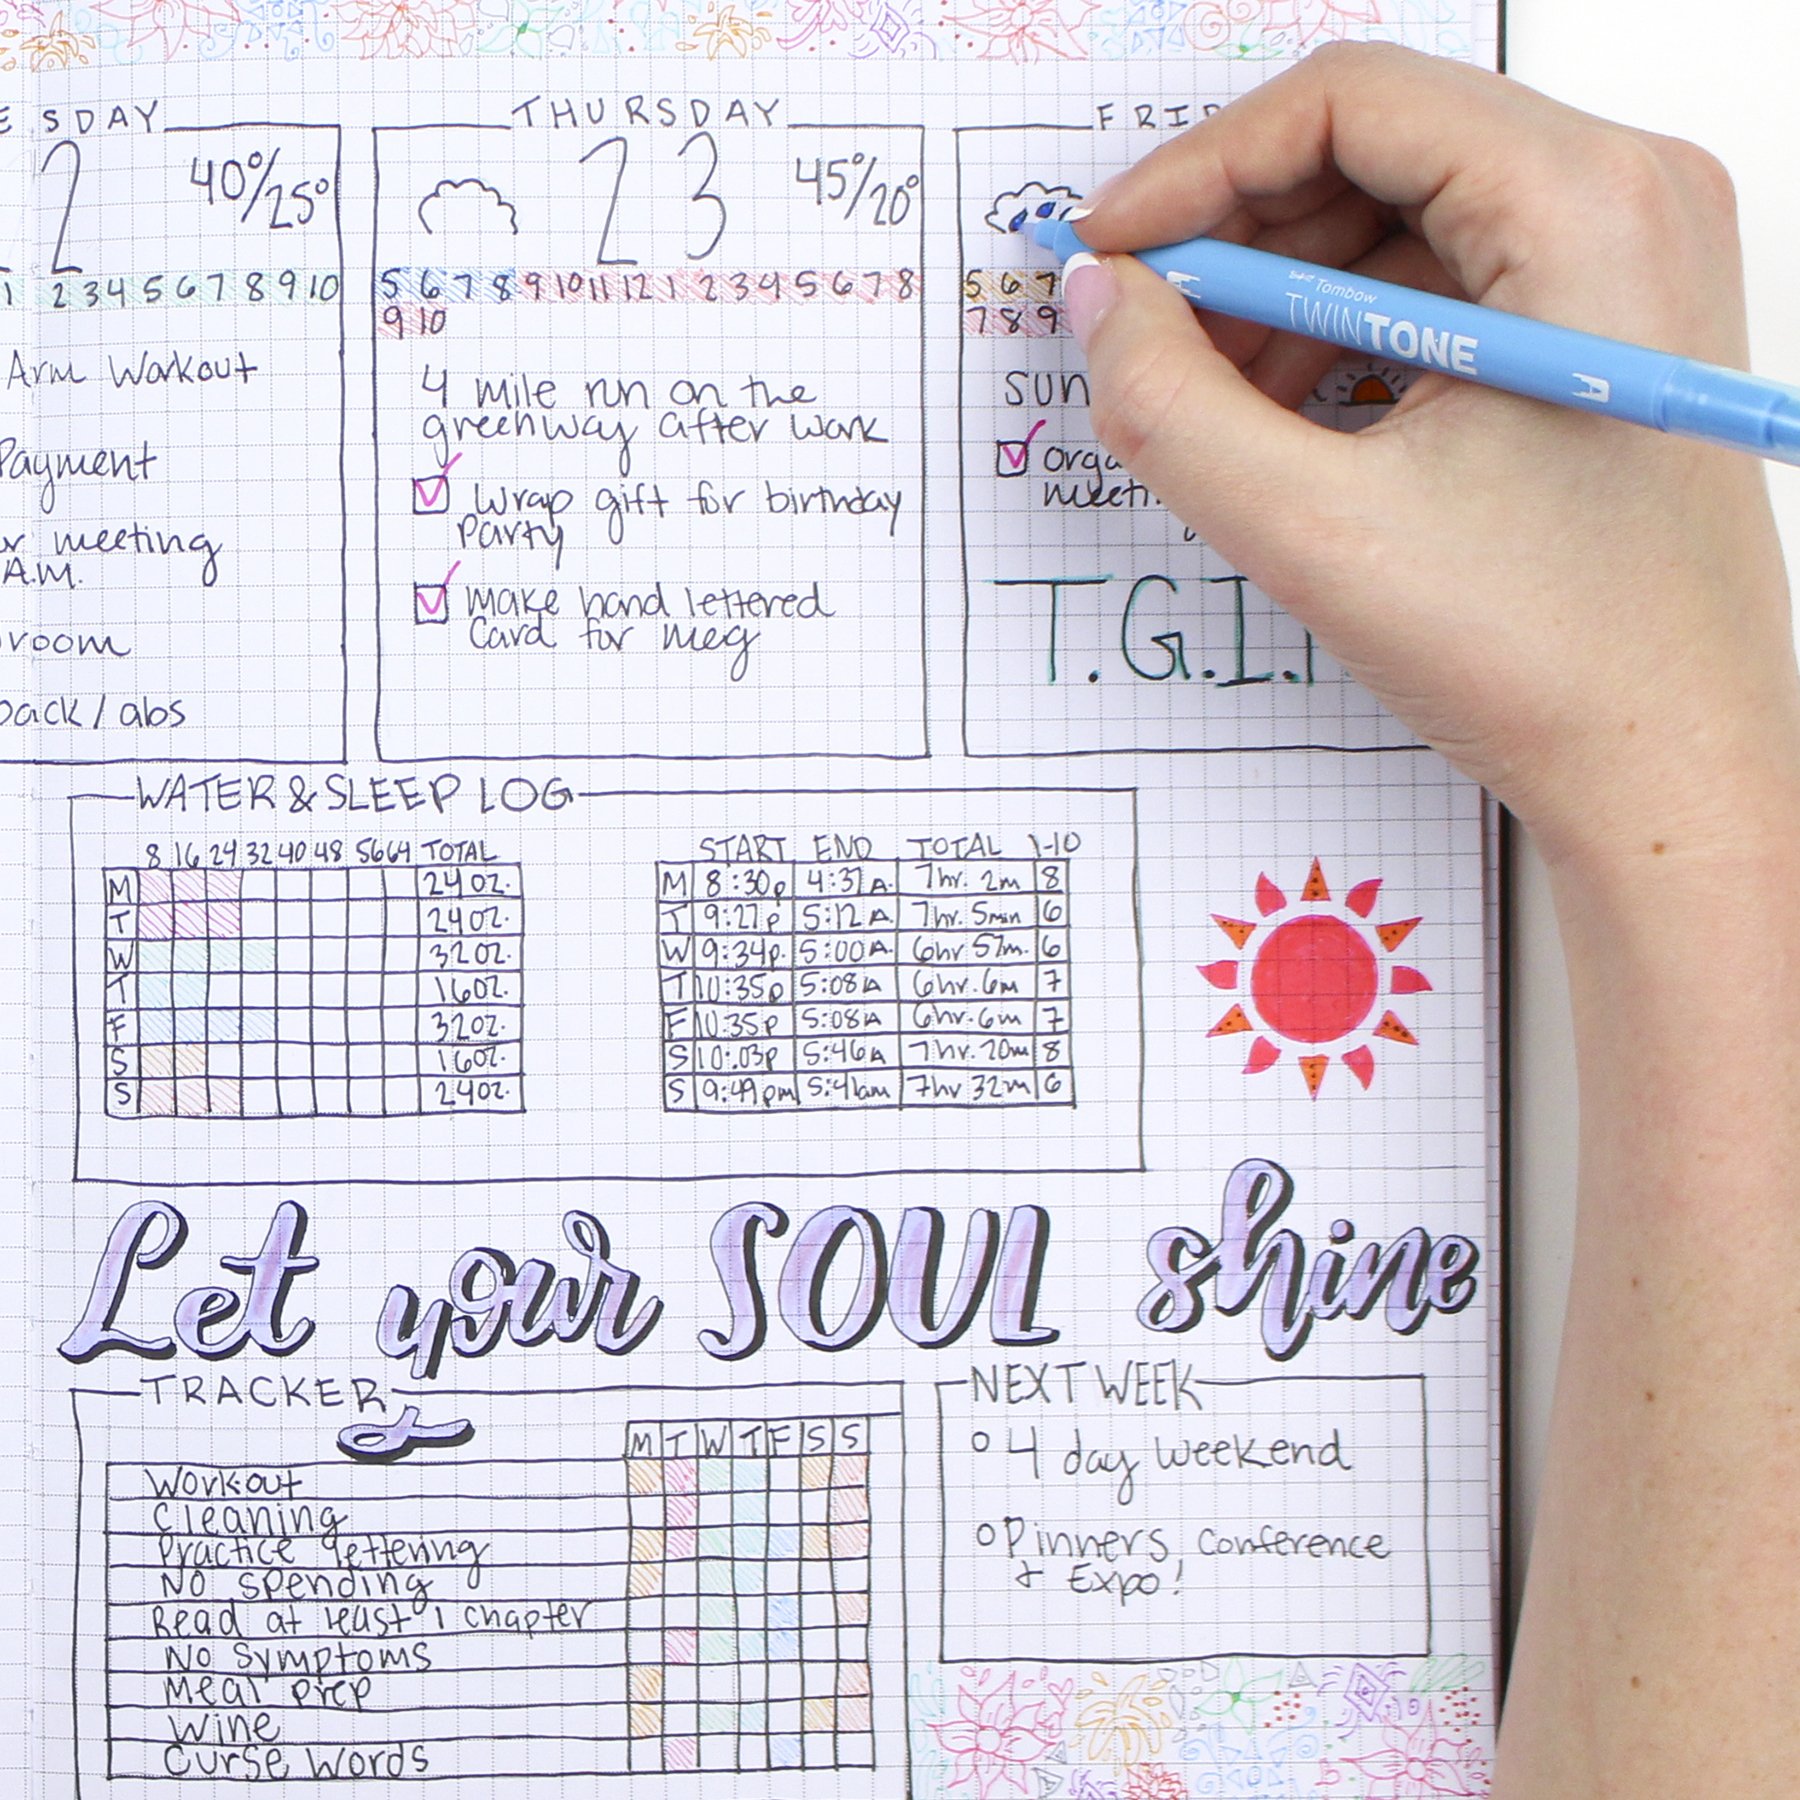 ESDAY
2
40°/25°
1 2 3 4 5 6 7 8 9 10
Arm Workout
Payment
meeting
A.M.
room
back/abs
THURSDAY
23
45°/20°
5 6 7 8 9 10 11 12 1 2 3 4 5 6 7 8
9 10
4 mile run on the
greenway after work
wrap gift for birthday
party
make hand lettered
card for meg
FRID
5 6 7
7 8 9
SUN
orga
meeti
T.G.I.F
Tombow
TWINTONE
A
A
WATER & SLEEP LOG
8 16 24 32 40 48 56 64 TOTAL
M 24 OZ.
T 24 OZ.
W 32 OZ.
T 16 OZ.
F 32 OZ.
S 16 OZ.
S 24 OZ.
START END TOTAL 1-10
M 8:30p 4:37A. 7hr. 2m 8
T 9:27p 5:12A. 7hr. 5min 6
W 9:34p. 5:00A. 6hr 57m. 6
T 10:35p 5:08A 6hr. 6m 7
F 10:35p 5:08A 6hr. 6m 7
S 10:03p 5:46A 7hr. 20m 8
S 9:49pm 5:41am 7hr 32m 6
Let your SOUL shine
TRACKER
M T W T F S S
Workout
Cleaning
Practice lettering
No spending
Read at least 1 chapter
No symptoms
Meal prep
Wine
Curse Words
NEXT WEEK
4 day weekend
Pinners Conference
+ Expo!